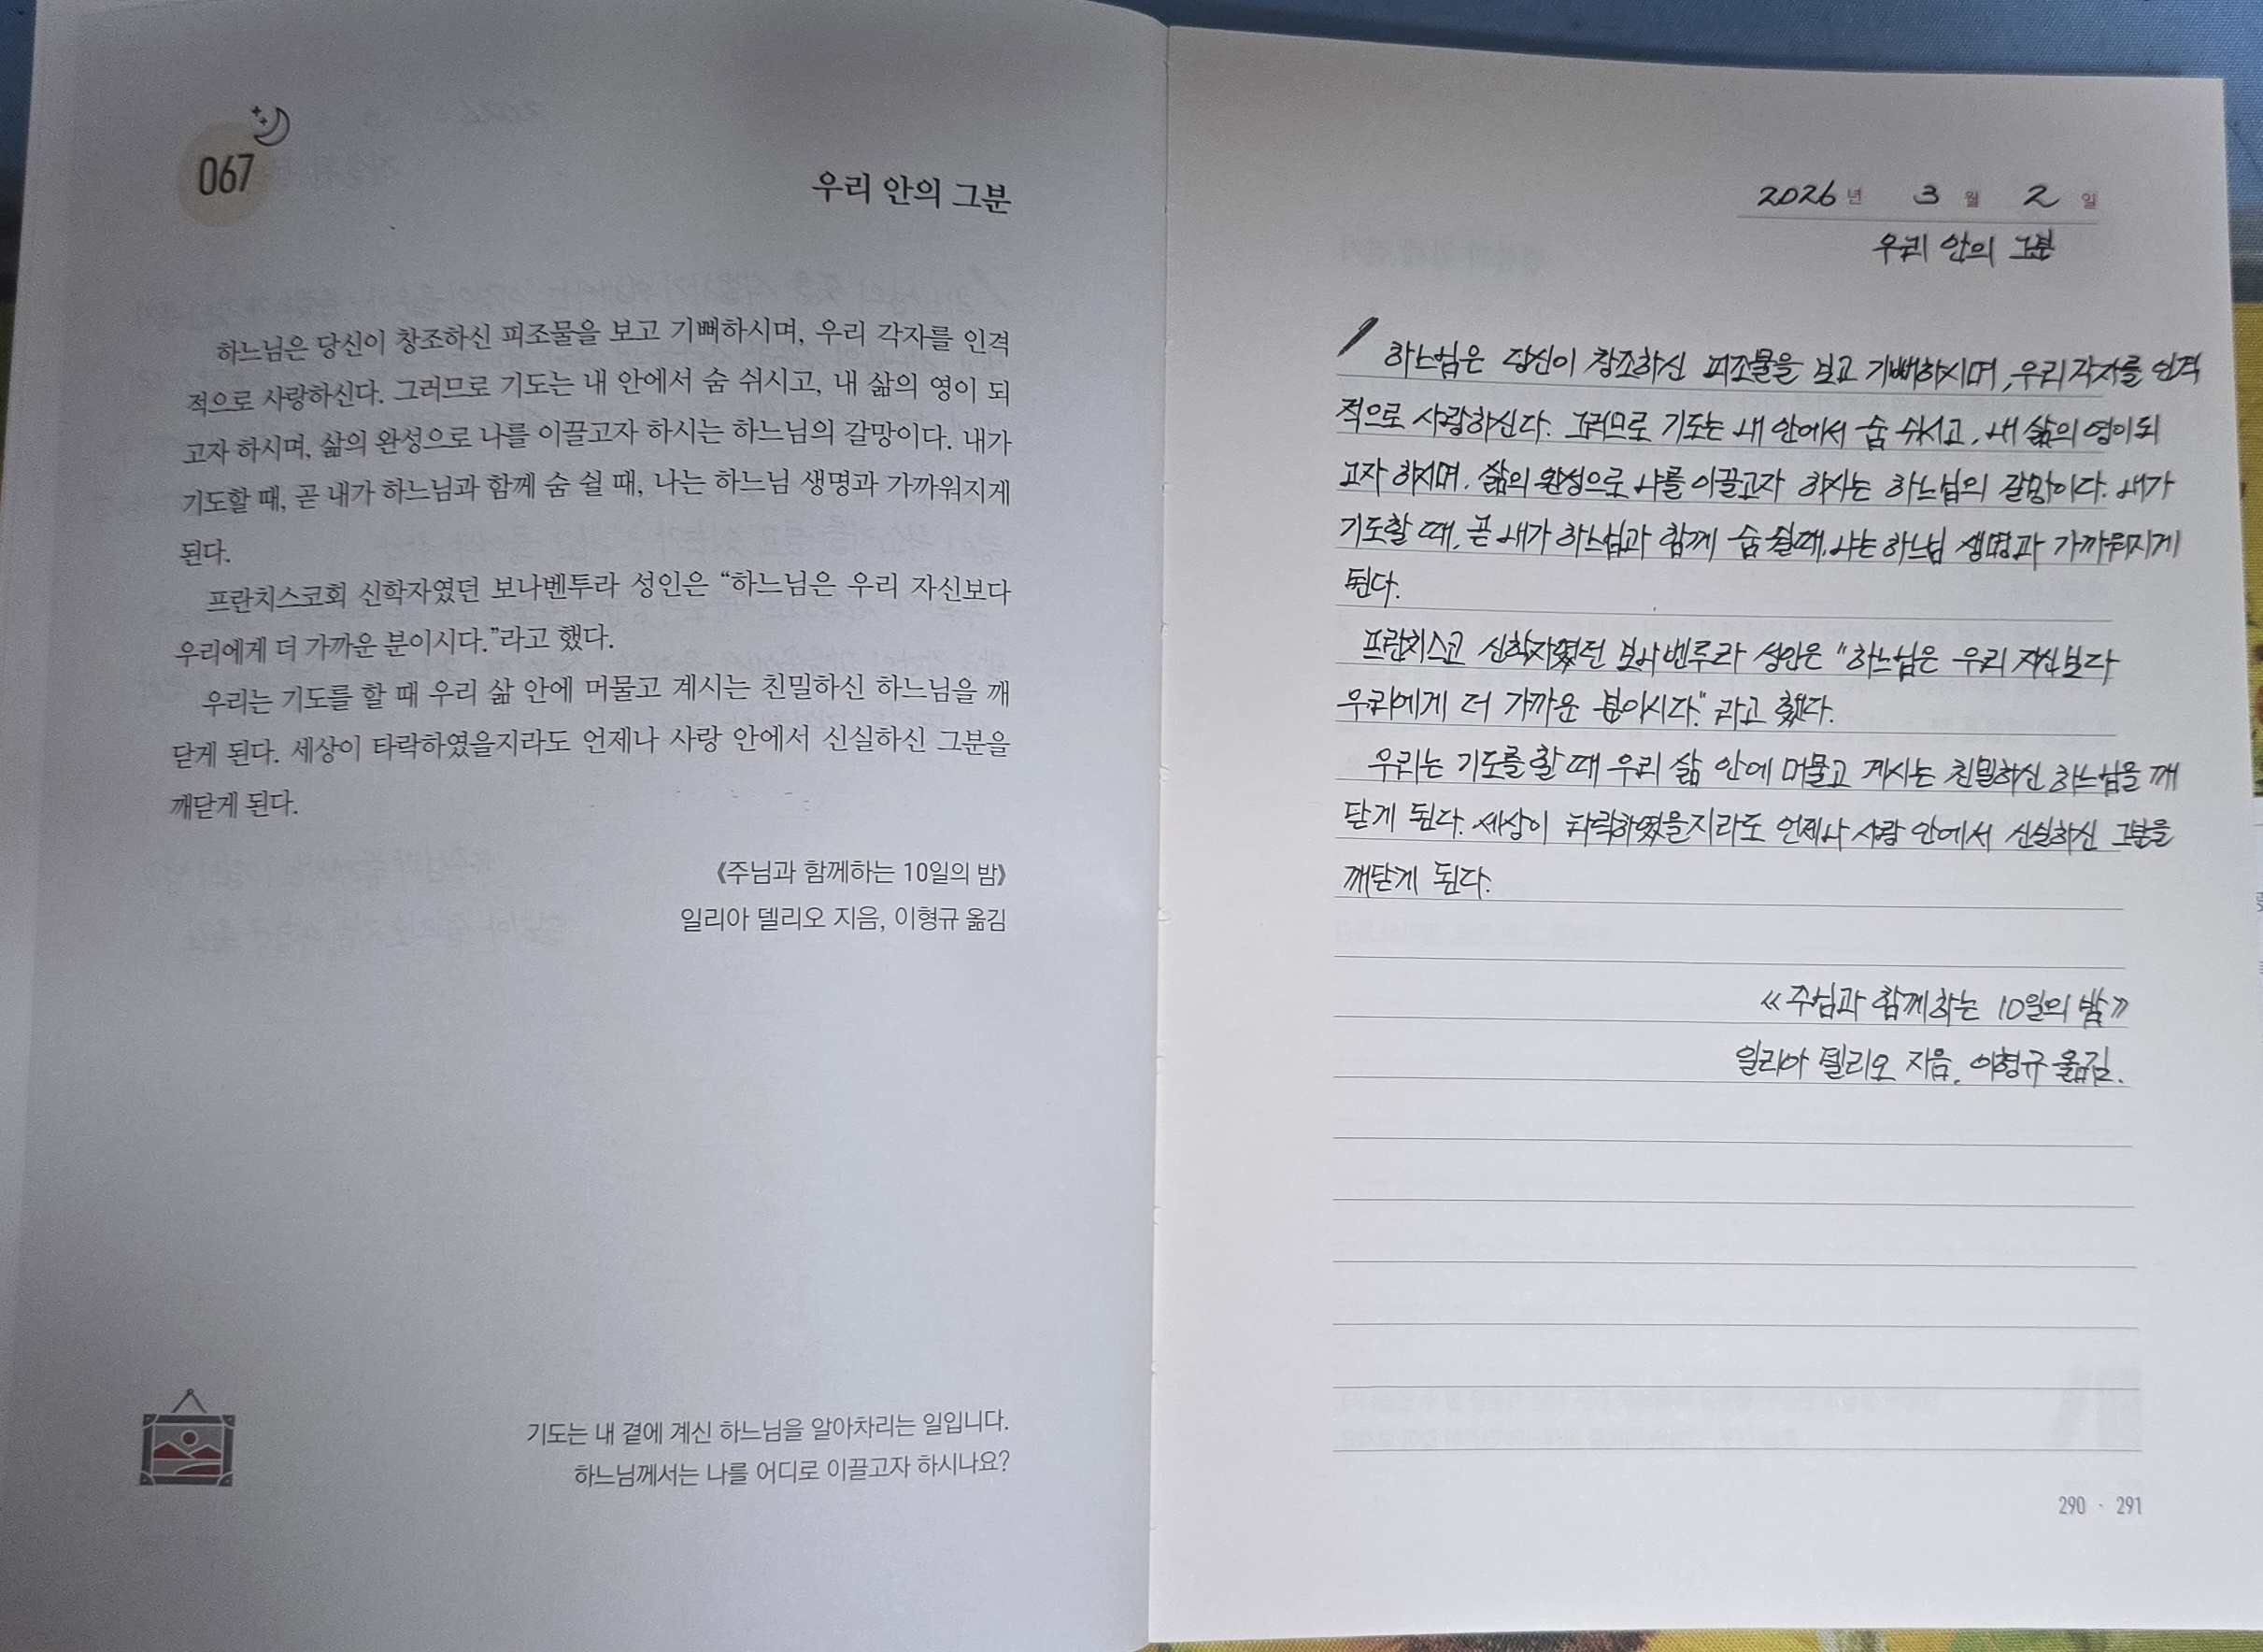 067
우리 안의 그분
하느님은 당신이 창조하신 피조물을 보고 기뻐하시며, 우리 각자를 인격
적으로 사랑하신다. 그러므로 기도는 내 안에서 숨 쉬시고, 내 삶의 영이 되
고자 하시며, 삶의 완성으로 나를 이끌고자 하시는 하느님의 갈망이다. 내가
기도할 때, 곧 내가 하느님과 함께 숨 쉴 때, 나는 하느님 생명과 가까워지게
된다.
프란치스코회 신학자였던 보나벤투라 성인은 “하느님은 우리 자신보다
우리에게 더 가까운 분이시다.”라고 했다.
우리는 기도를 할 때 우리 삶 안에 머물고 계시는 친밀하신 하느님을 깨
닫게 된다. 세상이 타락하였을지라도 언제나 사랑 안에서 신실하신 그분을
깨닫게 된다.
《주님과 함께하는 10일의 밤》
일리아 델리오 지음, 이형규 옮김
기도는 내 곁에 계신 하느님을 알아차리는 일입니다.
하느님께서는 나를 어디로 이끌고자 하시나요?
2026년 3월 2일
우리 안의 그분
하느님은 당신이 창조하신 피조물을 보고 기뻐하시며, 우리 각자를 인격
적으로 사랑하신다. 그러므로 기도는 내 안에서 숨 쉬시고, 내 삶의 영이 되
고자 하시며. 삶의 완성으로 나를 이끌고자 하시는 하느님의 갈망이다. 내가
기도할 때. 곧 내가 하느님과 함께 숨 쉴때. 나는 하느님 생명과 가까워지게
된다.
프란치스코 신학자였던 보나벤투라 성인은 "하느님은 우리 자신보다
우리에게 더 가까운 분이시다." 라고 했다.
우리는 기도를 할 때 우리 삶 안에 머물고 계시는 친밀하신 하느님을 깨
닫게 된다. 세상이 타락하였을지라도 언제나 사랑 안에서 신실하신 그분을
깨닫게 된다.
《주님과 함께하는 10일의 밤》
일리아 델리오 지음. 이형규 옮김.
290 · 291